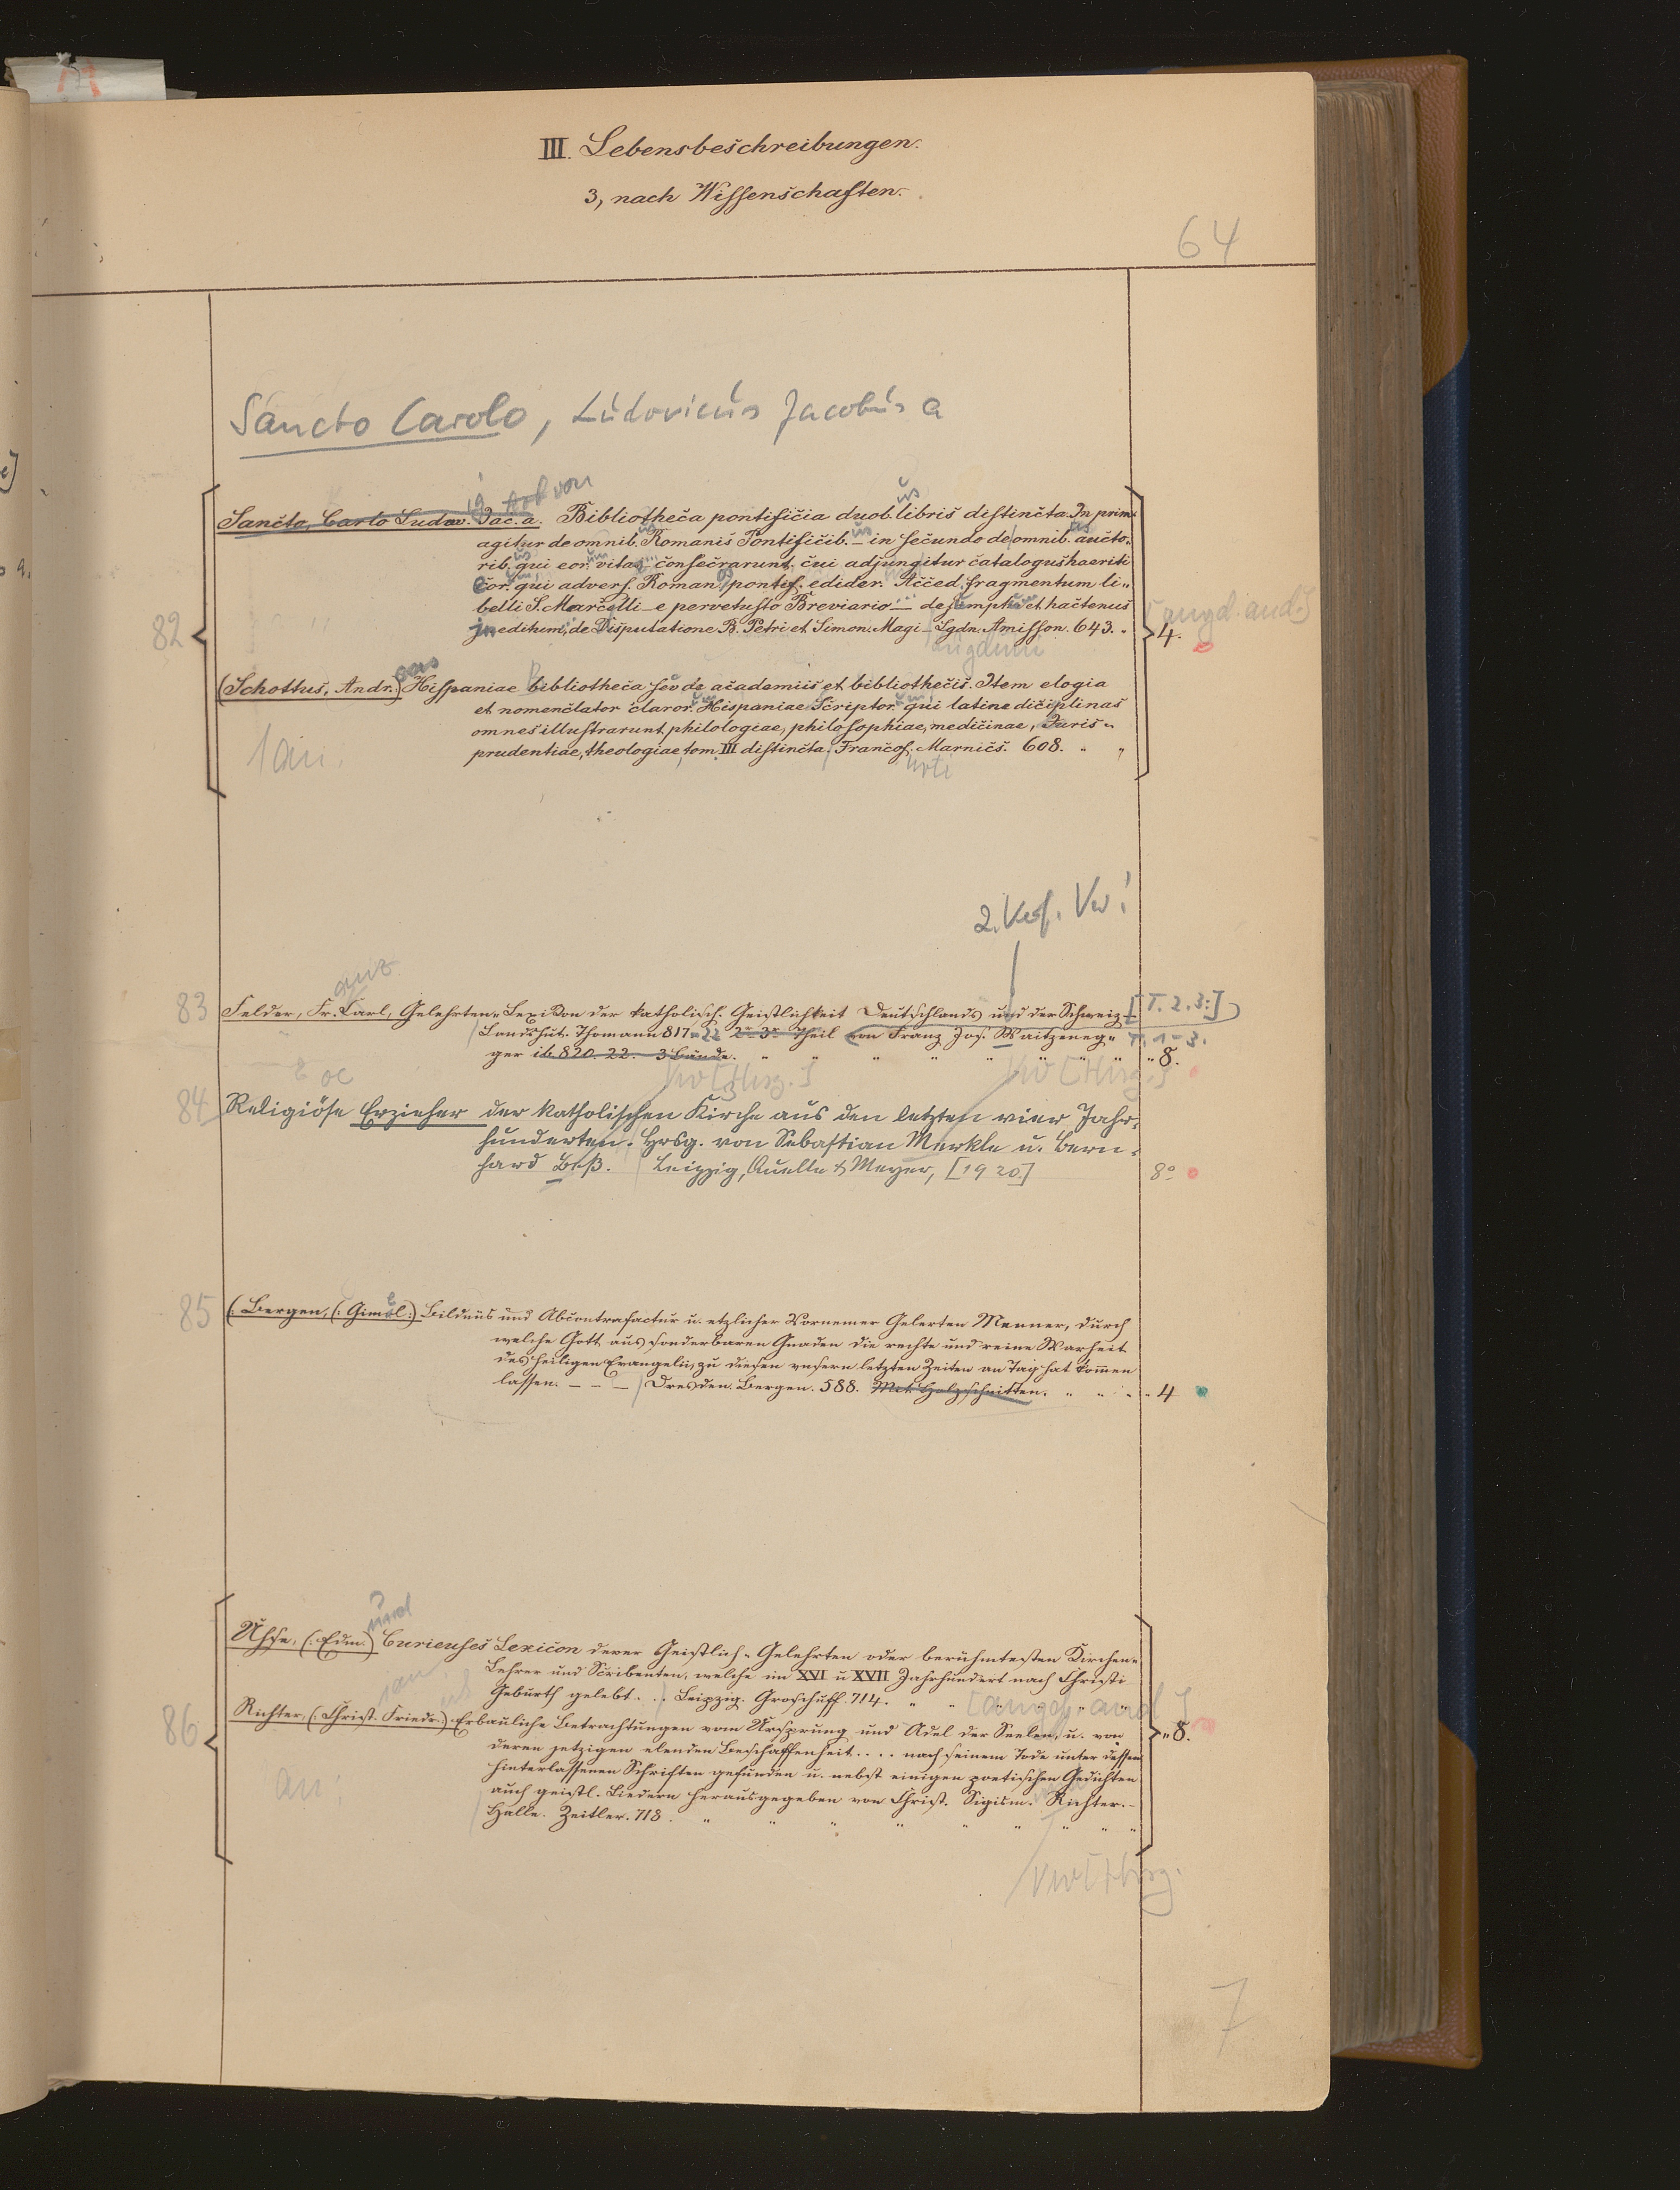 III. Lebensbeschreibungen.
3, nach Wissenschaften.
64
Sancto Carolo, Ludovicus Jacobus a
Sancto, Carlo Ludov. Jac. a. Bibliotheca pontificia duob. libris distincta. In prim
agitur de omnib. Romanis Pontificib. _ in secunde de omnib. aucto-
rib. qui eor. vitas consecrarunt. cui adjungitur catalogus haeriti
cor. qui advers. Roman. pontif. edider. Acced. fragmentum li-
belli S. Marcelli _ e pervetusto Breviario _ desumptu et hactenus
ineditum, de Disputatione B. Petri et Simon. Magi _ Lgdn. Amisson. 643.
82
4.
(Schottus, Andr.) Hispaniae bibliotheca seu de academiis et bibliothecis. Item elogia
et nomenclator claror. Hispaniae Scriptor. qui latine diciplinas
omnes illustrarunt philologiae, philosophiae, medicinae, Juris-
prudentiae, theologiae, tom. III distincta. Francof. Marnics. 608.
2. Verf. Vw!
83 Felder, Fr. Carl, Gelehrten-Lexikon der katholisch. Geistlichkeit Deutschlands und der Schweiz [T. 2. 3:]
Landshut. Thomann 817-22 2r 3r Theil von Franz Jos. Waitzeneg- T. 1-3.
ger ib. 820. 22. 3 Bände. 8.
Vw [Hrsg.] Vw [Hrsg.]
84 Religiöse Erzieher der katholischen Kirche aus den letzten vier Jahr-
hunderten. Hrsg. von Sebastian Merkle u. Bern-
hard Beß. Leipzig, Quelle & Meyer, [1920.] 8°
85 (: Bergen, (: Gimel :) Bildnüs und Abcontrafactur u. etzlicher Vornemer Gelerten Menner, durch
welche Gott aus sonderbaren Gnaden die rechte und reine Warheit
des heiligen Evangelii, zu diesen unsern letzten Zeiten an Tag hat kommen
lassen. _ _ _ Dresden. Bergen. 588. Mit Holzschnitten. 4
Uhse, (: Edm.) Curieuses Lexicon derer Geistlich-Gelehrten oder berühmtesten Kirchen-
Lehrer und Scribenten, welche im XVI u XVII Jahrhundert nach Christi
Geburth gelebt. .. Leipzig. Groschuff. 714.
86
Richter, (: Christ. Friedr. :) Erbauliche Betrachtungen vom Ursprung und Adel der Seelen, u. von
8.
deren jetzigen elenden Beschaffenheit.... nach seinem Tode unter dessen
hinterlassenen Schriften gefunden u. nebst einigen poetischen Gedichten
auch geistl. Liedern herausgegeben von Christ. Sigism. Richter.-
Halle. Zeitler. 718.
Vw [Hrsg.
7